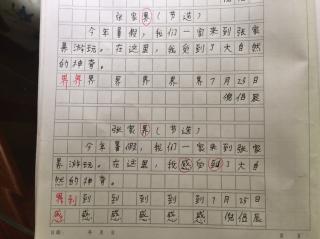 张家界（节选）
今年暑假，我们一家来到张家
界游玩。在这里，我感到了大自然
的神奇。
界界 界 界 界 界 界 7月23日
张家界（节选）
今年暑假，我们一家来到张家
界游玩。在这里，我感受到了大自
然的神奇。
界到 到 到 到 到 7月25日
感 感 感 感 感 感
日期： 年 月 日